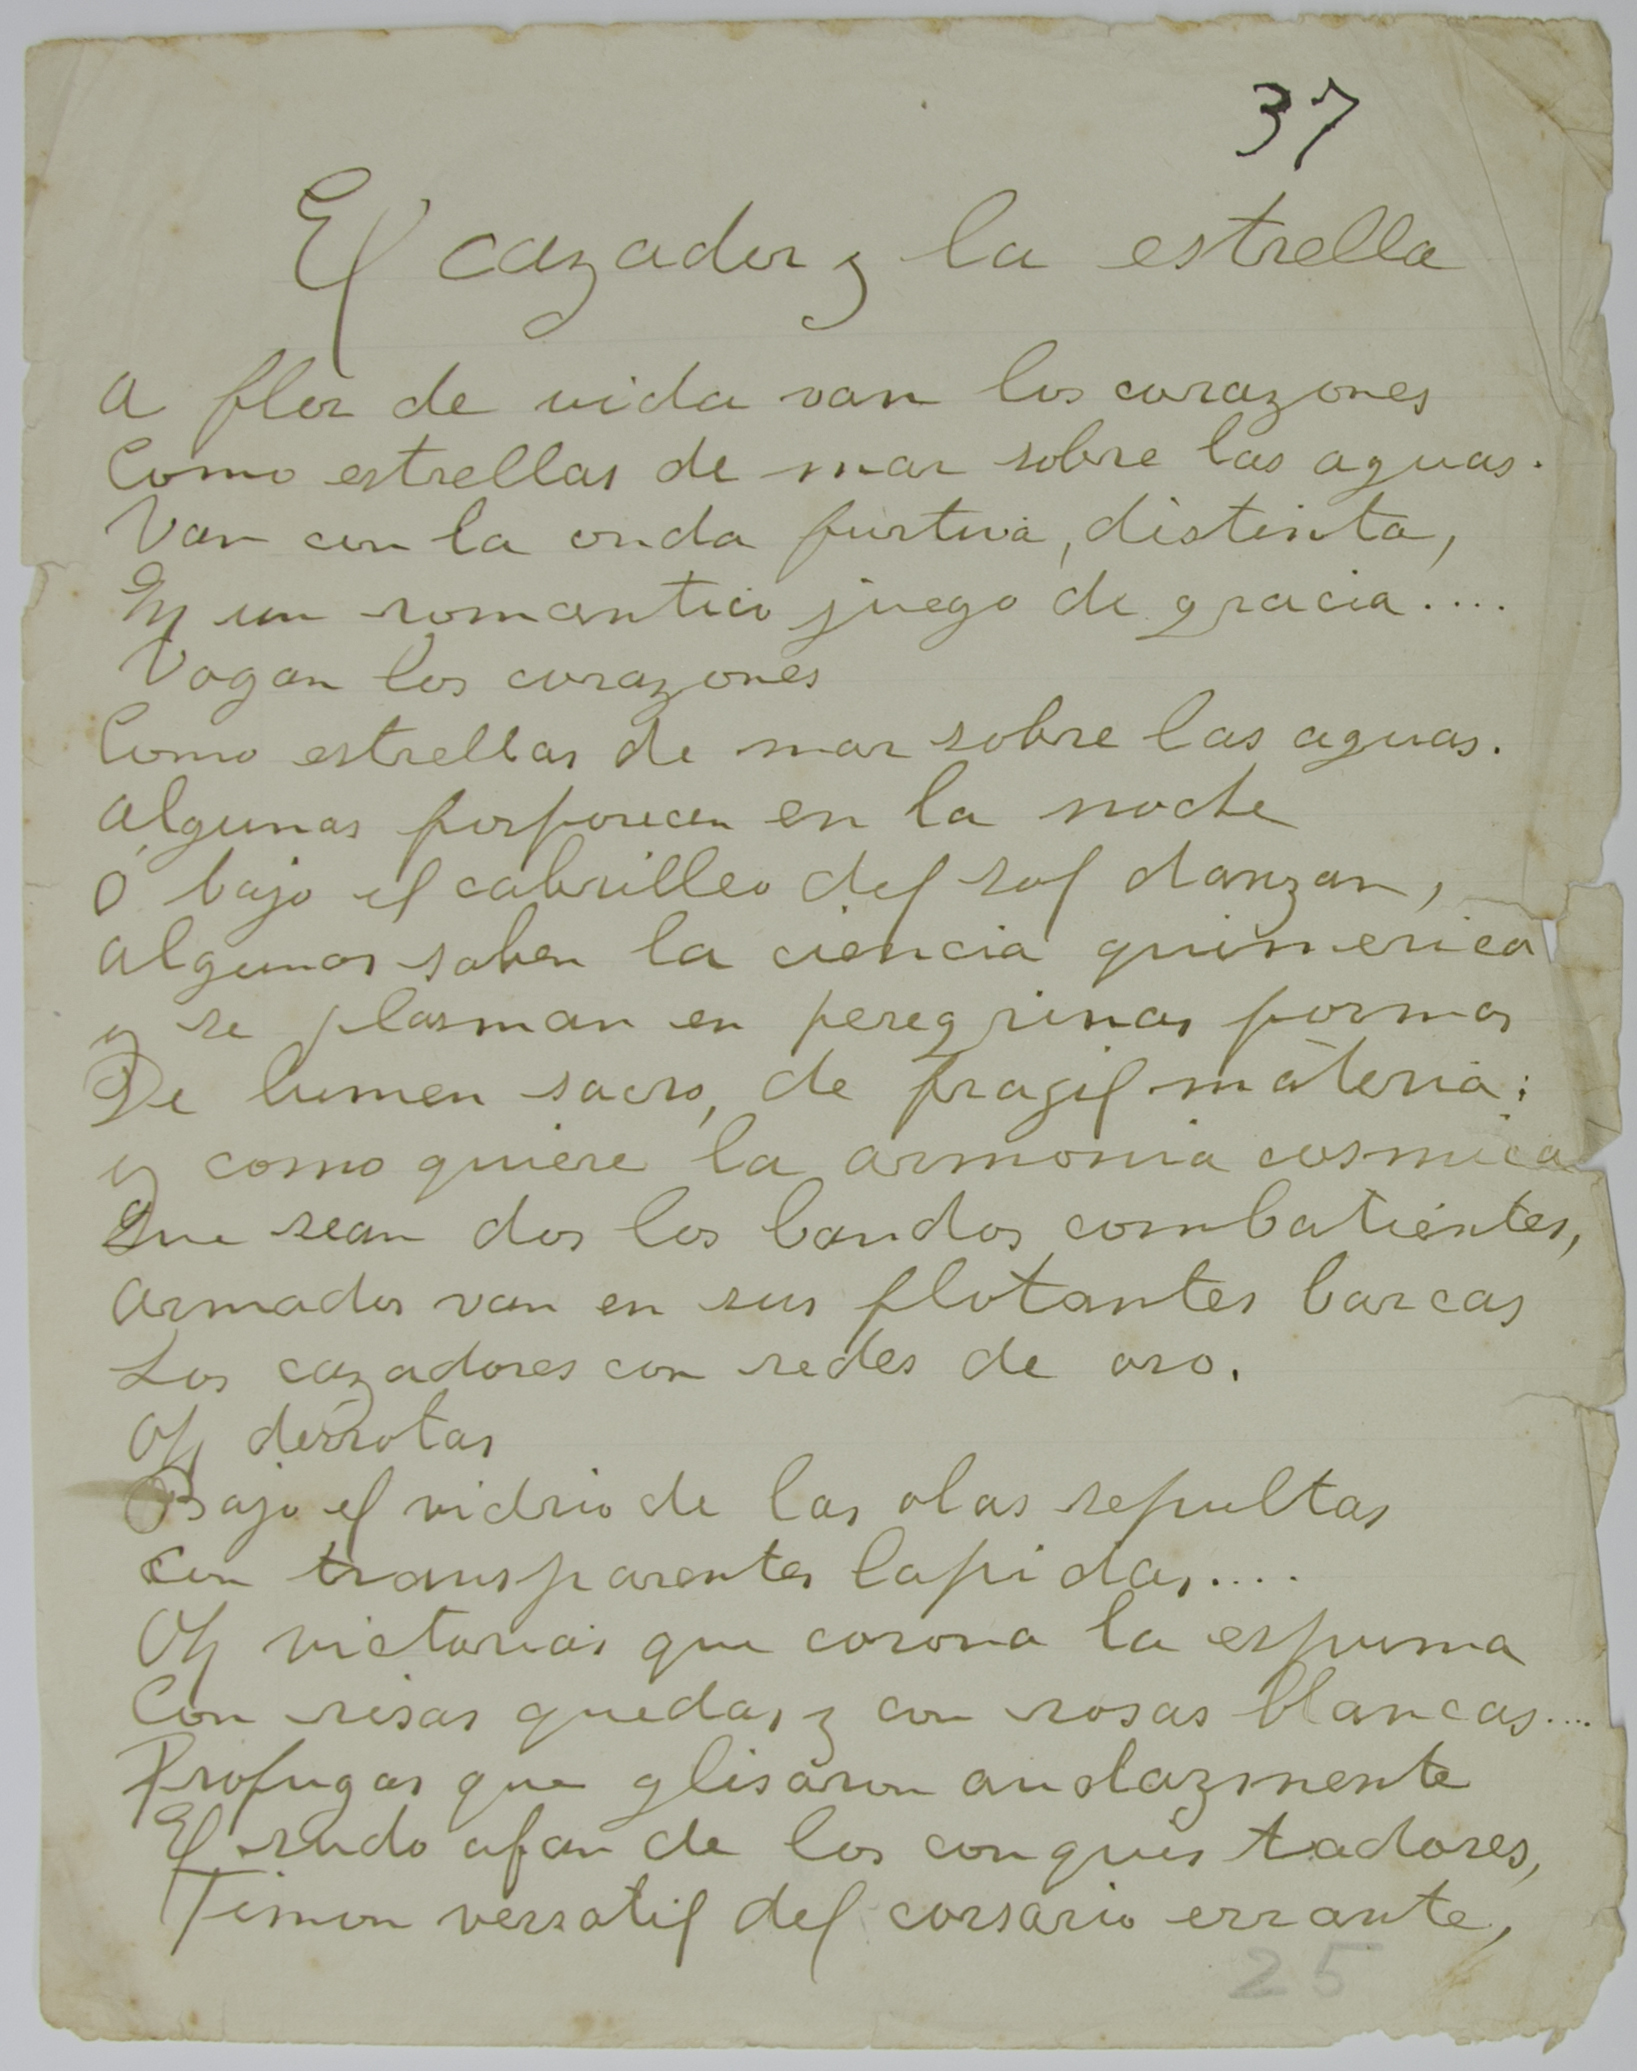 37
El cazador y la estrella
A flor de vida van los corazones
Como estrellas de mar sobre las aguas.
Van con la onda furtiva, distinta,
En un romantico juego de gracia....
Vagan los corazones
Como estrellas de mar sobre las aguas.
Algunas forforecen en la noche
O bajo el cabrilleo del sol danzan,
Algunas saben la ciencia quimerica
y se plasman en peregrinas formas
De lumen sacro, de fragil materia;
y como quiere la armonia cosmica
Que sean dos los bandos combatientes,
Armados van en sus flotantes barcas
Los cazadores con redes de oro.
Oh derrotas
Bajo el vidrio de las olas sepultas
Con transparentes lapidas....
Oh victorias que corona la espuma
Con risas quedas y con rosas blancas....
Profugas que glisaron audazmente
El rudo afan de los conquistadores,
Timon versatil del corsario errante,
25